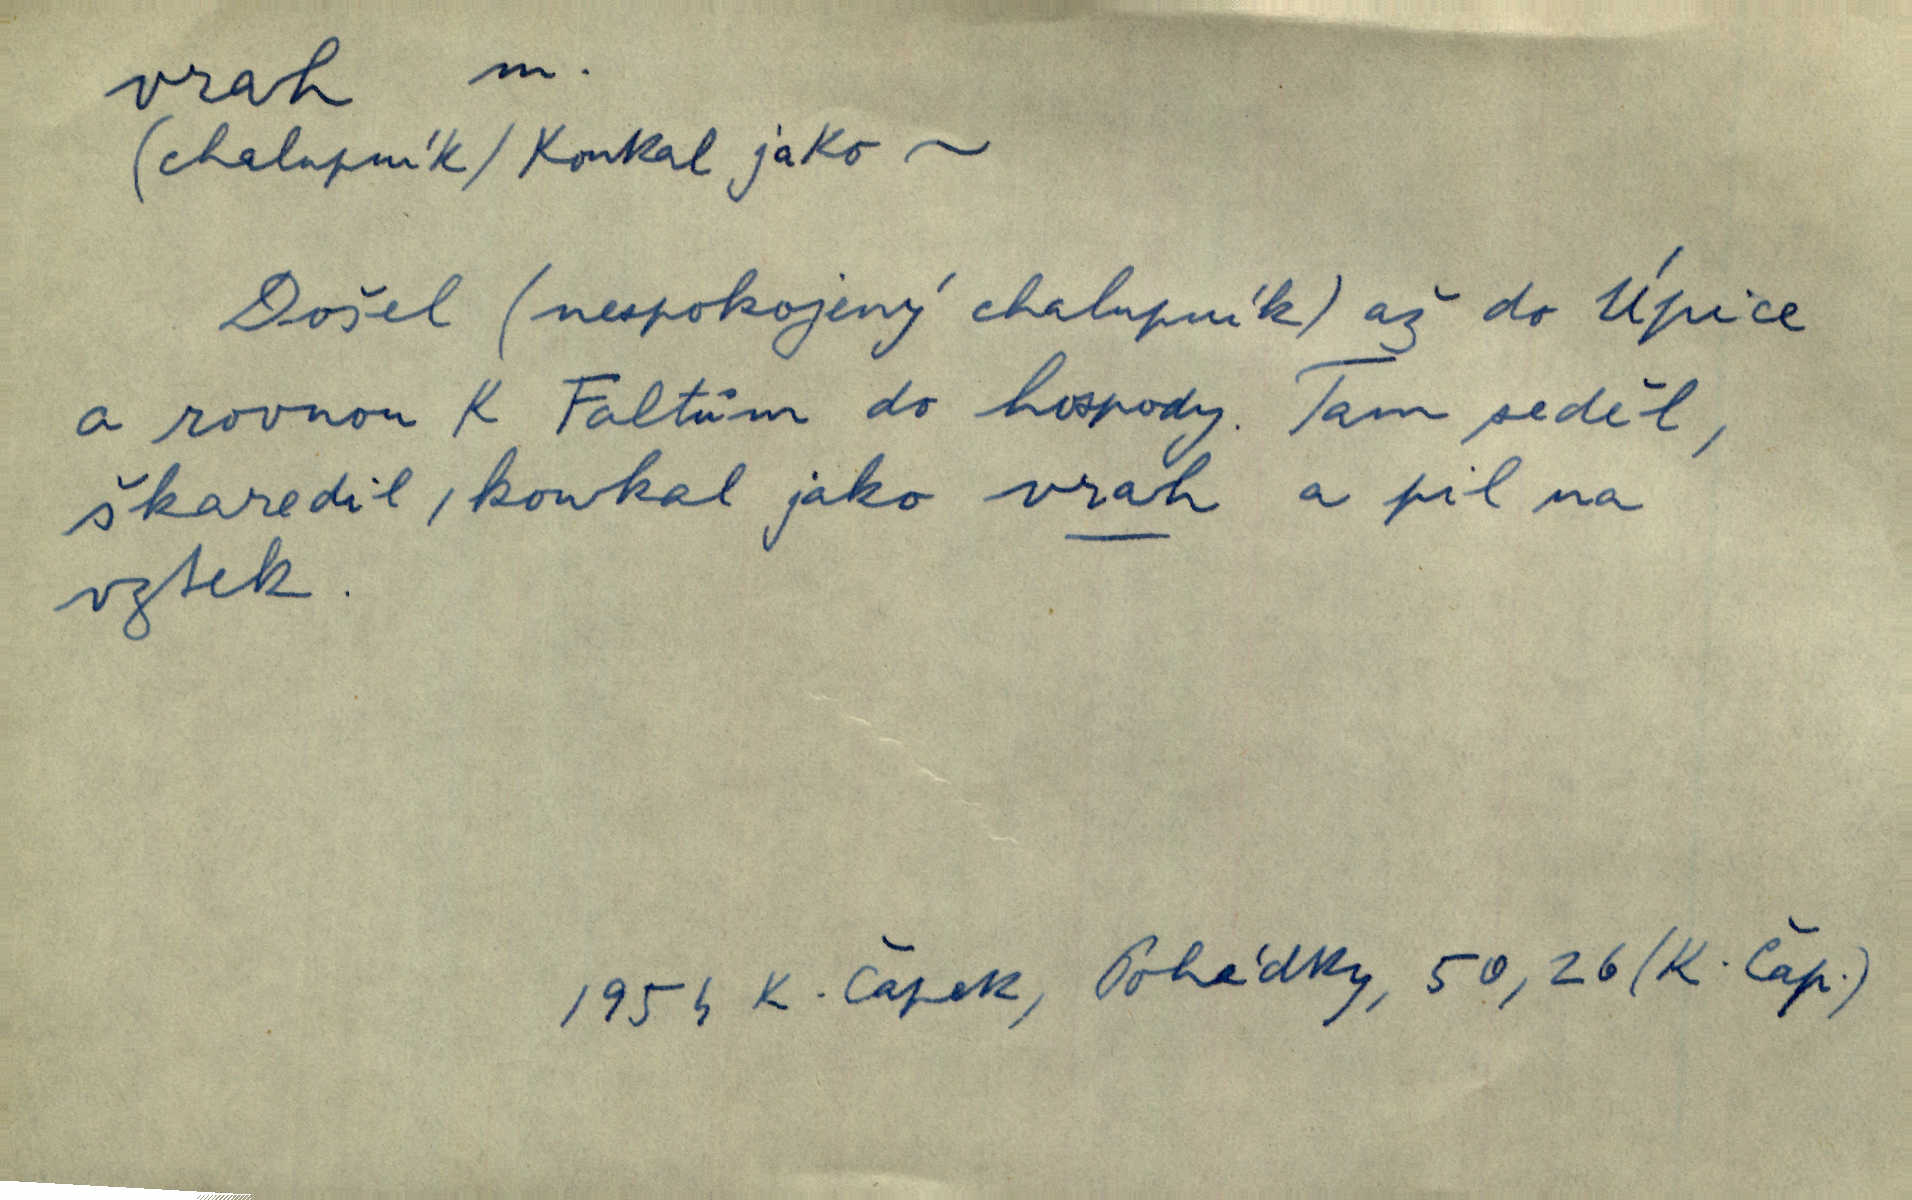 vrah m.
(chalupník) Koukal jako ~
Došel (nespokojený chalupník) až do Úpice
a rovnou k Faltům do hospody. Tam seděl,
škaredil, koukal jako vrah a pil na
vztek.
1954 K. Čapek, Pohádky, 50, 26 (K. Čap.)